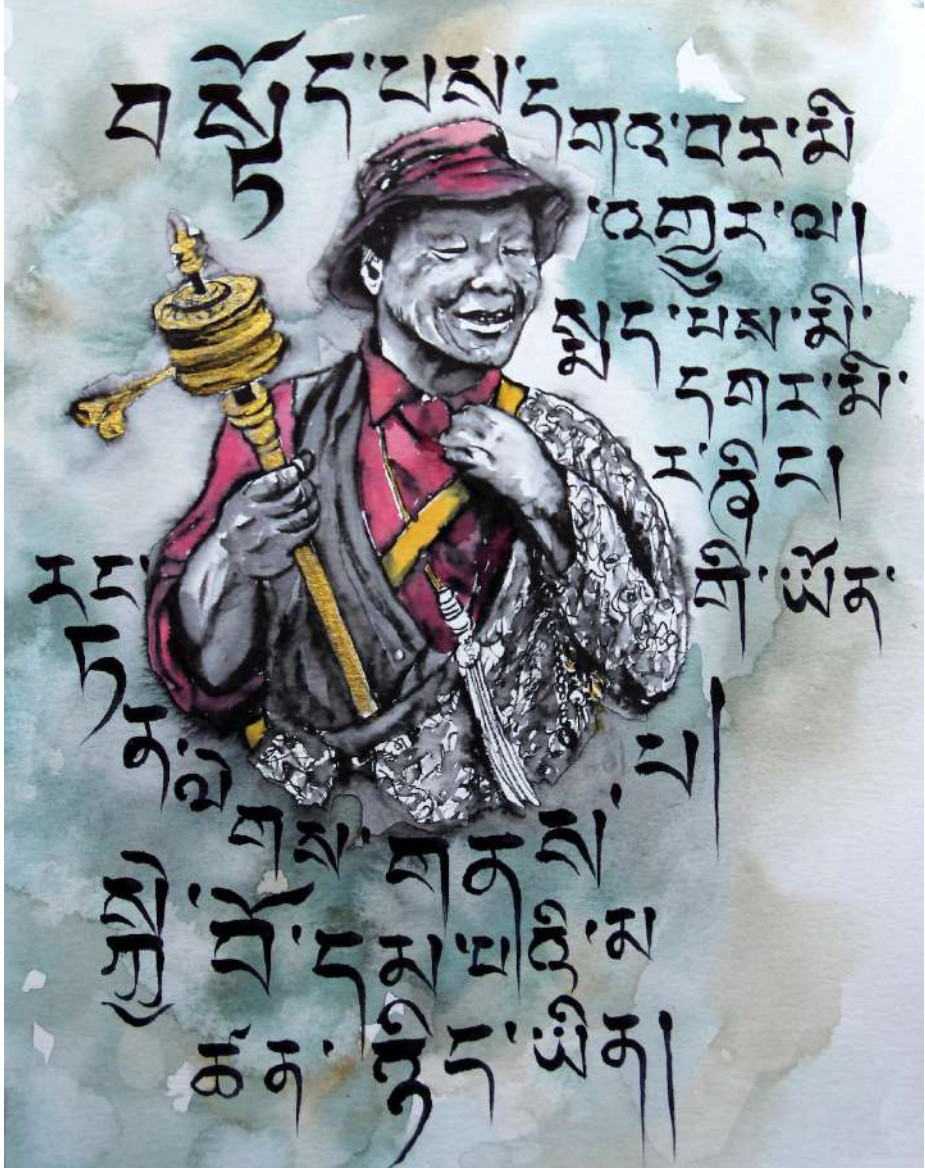 བསྟོད་པས་དགའ་བར་མི
འགྱུར་ལ།
སྨད་པས་མི་
དགར་མི་
རང་གི་ཡོན་
ཏ
ན་ལེ
གས་གནས་པ།
སྐྱེ་བོ་དམ་པའི་མ
ཚན་ཉིད་ཡིན།